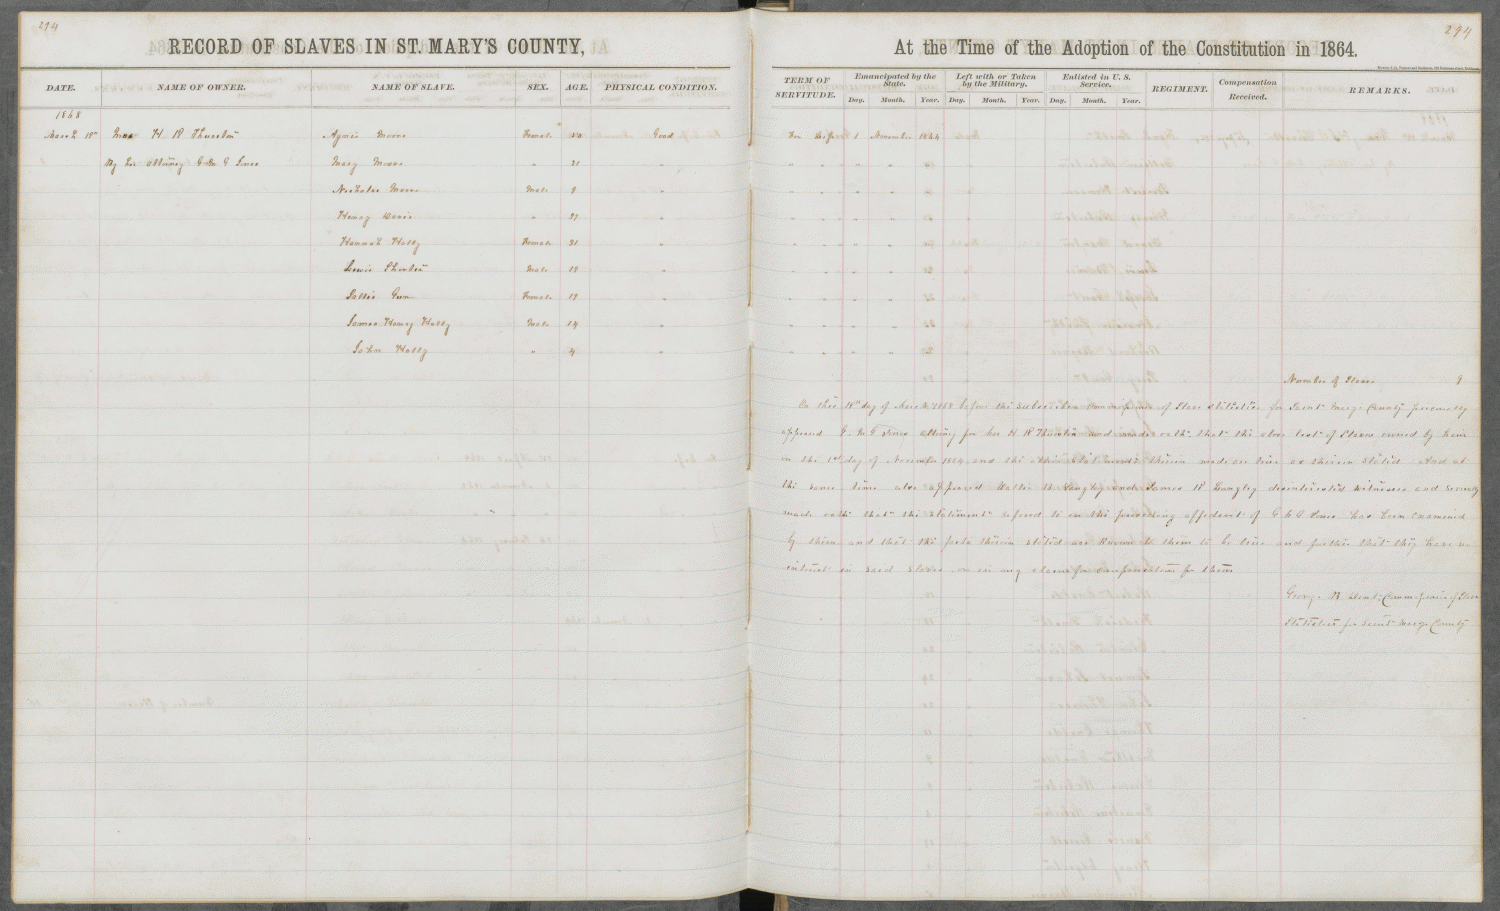 294
RECORD OF SLAVES IN ST. MARY'S COUNTY,
DATE. NAME OF OWNER. NAME OF SLAVE. SEX. AGE. PHYSICAL CONDITION.
1868
March 18th H R Agnes Moore Female Good
By her Attorney G Jones Mary Moore " 21 "
Nicholas Moore Male 9 "
Henry Davis " 27 "
Hannah Holly Female 31 "
Lewis Male 19 "
Sallie Gum Female 19 "
James Henry Holly Male 14 "
John Holly " 4 "
294
At the Time of the Adoption of the Constitution in 1864.
TERM OF SERVITUDE. Emancipated by the State. Left with or Taken by the Military. Enlisted in U. S. Service. REGIMENT. Compensation Received. REMARKS.
Day. Month. Year. Day. Month. Year. Day. Month. Year.
For Life 1 November 1864
" " " " "
" " " " "
" " " " "
" " " " "
" " " " "
" " " " "
" " " " "
" " " " "
Number of Slaves 9
On this 18th day of March 1868 before the subscriber Commissioner of Slave Statistics for Saint Mary's County personally
appeared Jones Attorney for H R and made oath that the above list of Slaves owned by him
on the 1st day of November 1864 and the other Statements therein made are true as therein stated And at
the same time also appeared Langley and James Langley disinterested witnesses and severally
made oath that the Statement refered to in the preceding affidavit of G Jones has been examined
by them and that the facts therein stated are known to them to be true and further that they have no
interest in said Slaves or in any claim for compensation for them
George B Dent Commissioner of Slave
Statistics for Saint Mary's County